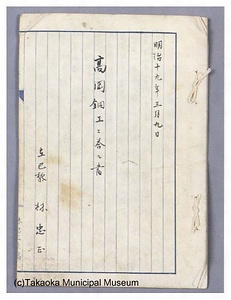 明治十九年三月九日
高岡銅工ニ答フ書
在巴黎 林忠正
(c)Takaoka Municipal Museum